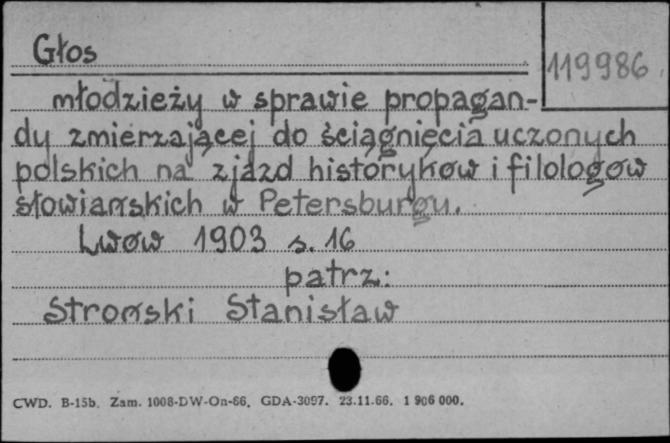 Głos
119986
młodzieży w sprawie propagan-
dy zmierzającej do ściągnięcia uczonych
polskich na zjazd historyków i filologów
słowiańskich w Petersburgu.
Lwów 1903 s. 16
patrz:
Stroński Stanisław
CWD. B-15b. Zam. 1008-DW-On-66. GDA-3097. 23.11.66. 1 906 000.